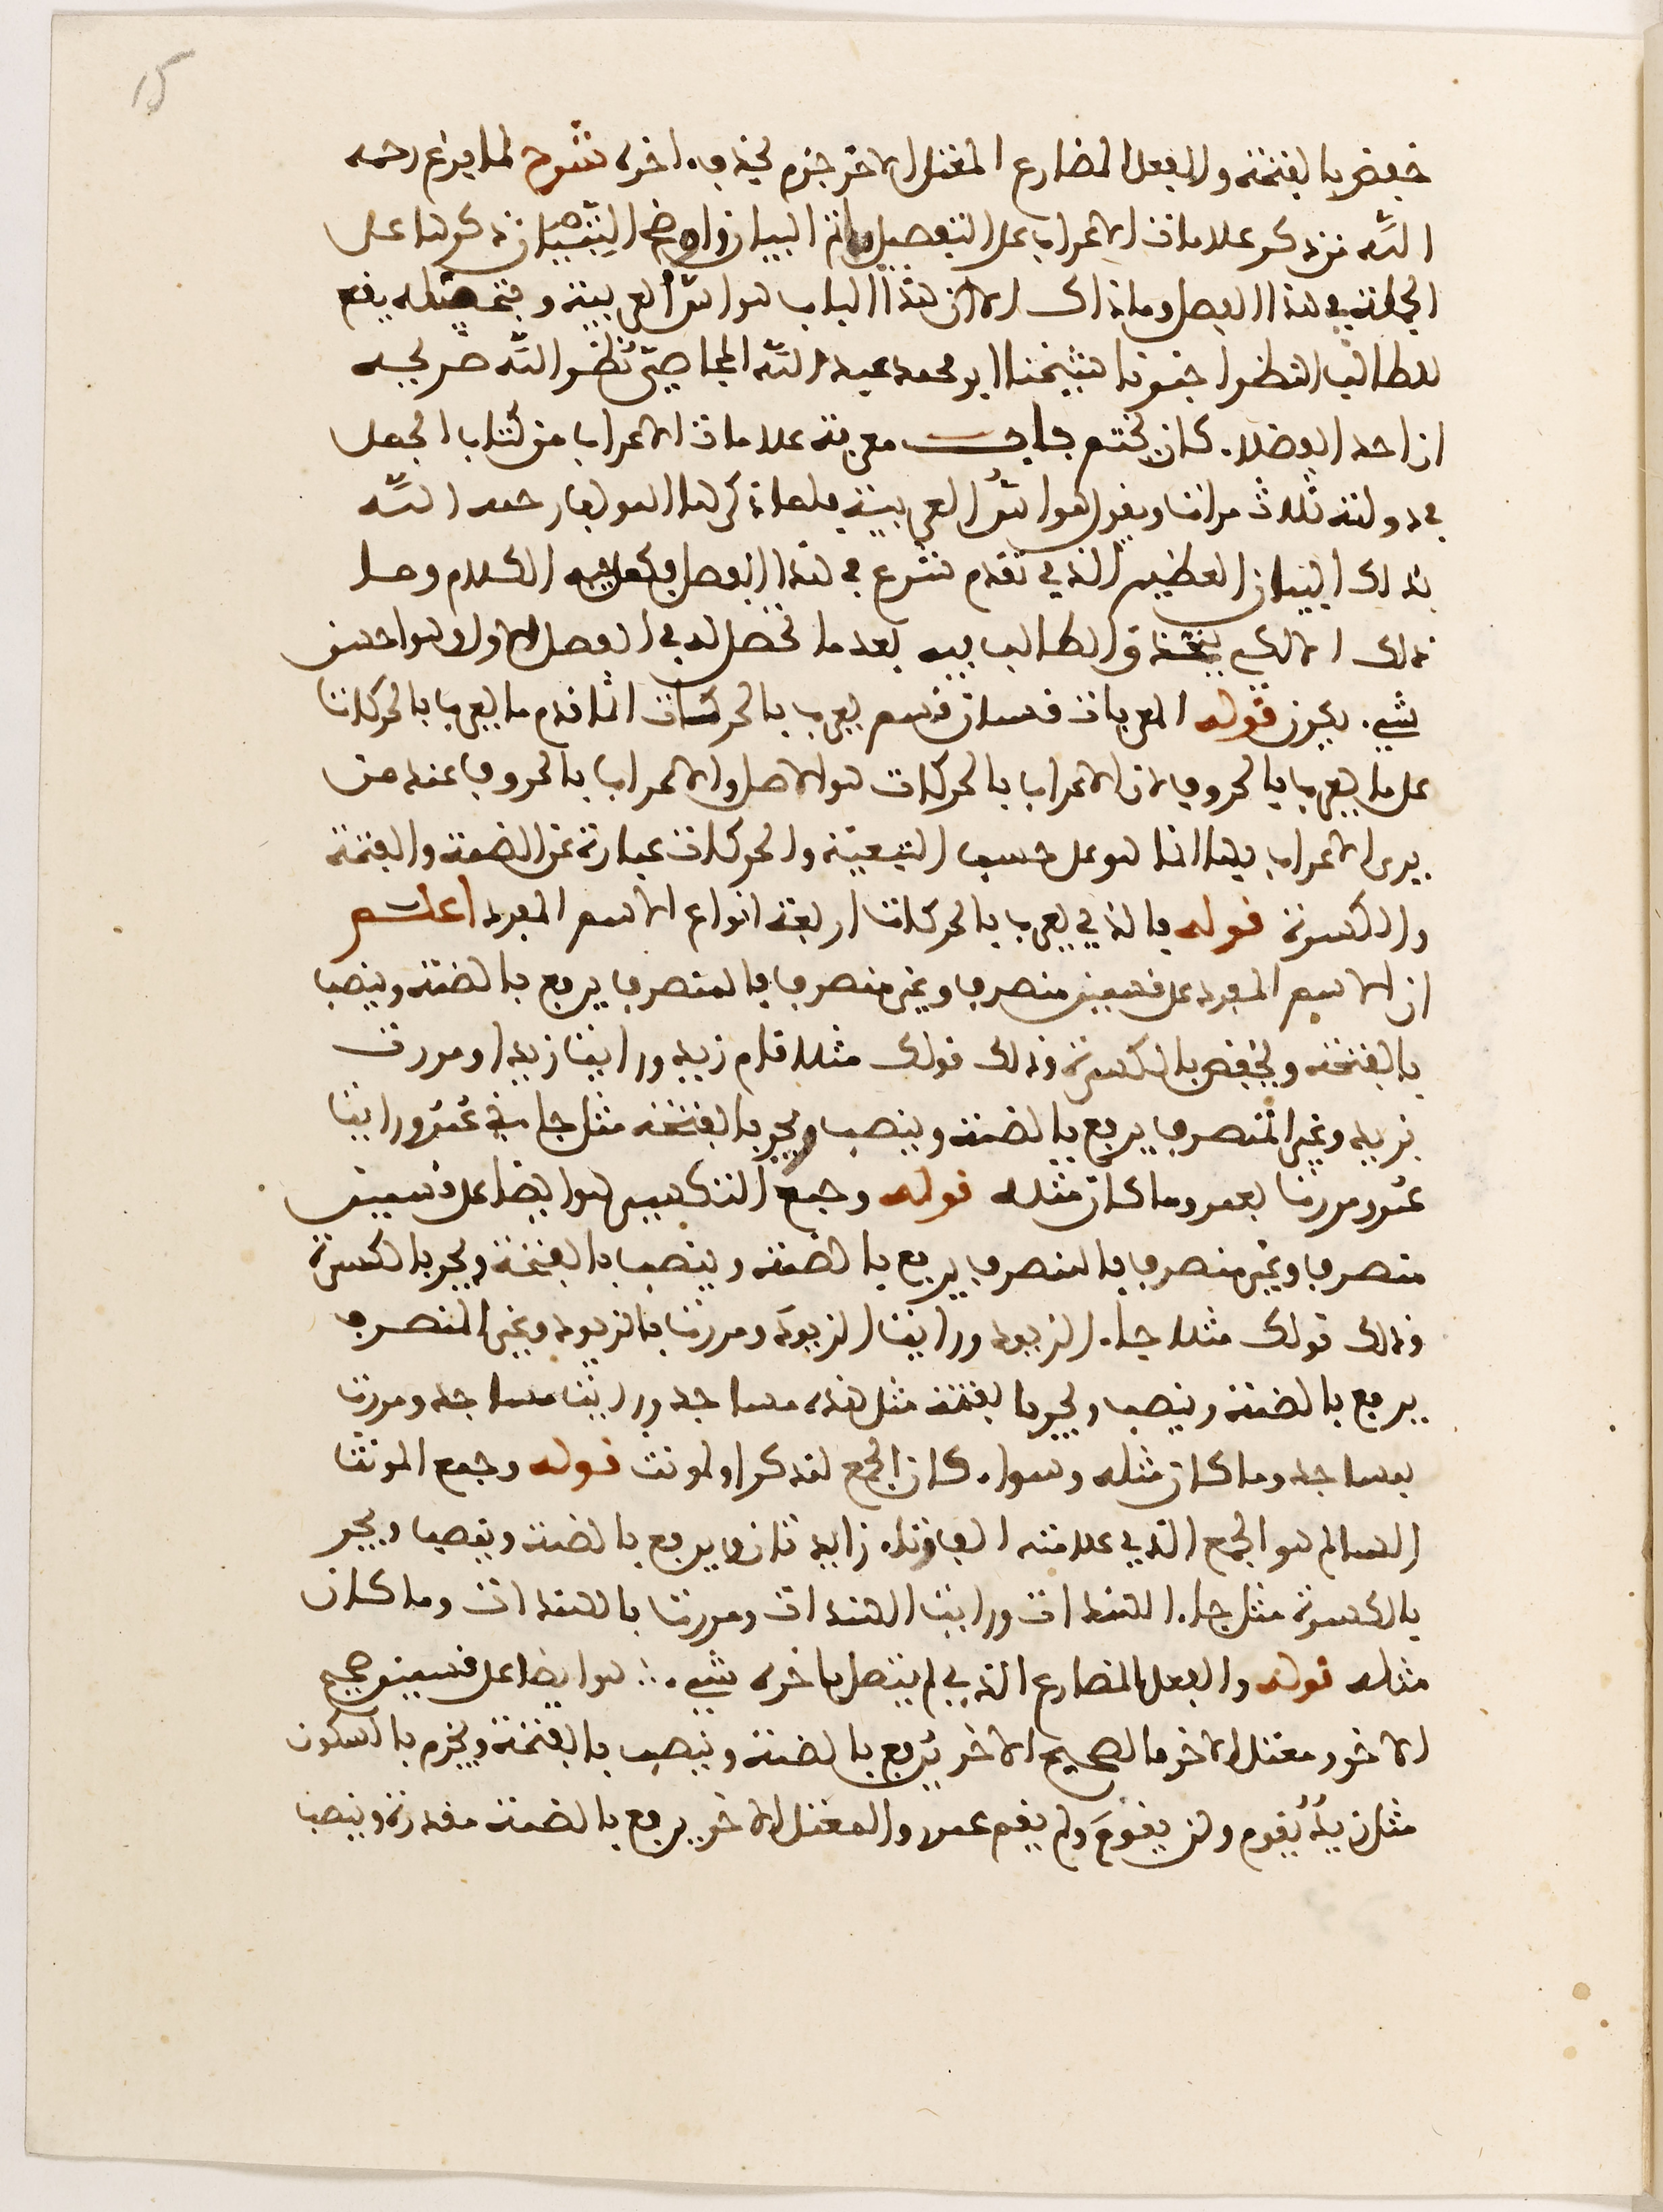 15
خفض بالفتحة والفعل المضارع المعتل الاخر جزم بحذف اخره شرح لما فرغ رحمه
الله من ذكر علامات الاعراب على التفصيل واتم البيان واوضح التبيان ذكرها على
الجملة في هذا الفصل وما ذاك الا ان هذا الباب هو اسّ العربية وبتحصيله ينتفع
الطالب انظر اخبرنا شيخنا ابو محمد عبد الله المجاصيّ نضر الله ضريحه
ان احد الفضلاء كان يختم باب معرفة علامات الاعراب من كتاب الجمل
في دولته ثلاث مرات ويقول هو اسّ العربية فلما ذكرها المولف رحمه الله
بذلك البيان العظيم الذي تقدم شرع في هذا الفصل الكلام وما
ذلك الا لكي الطالب فيه بعد ما تحصل له في الفصل الاول وهو احسن
شيء يكون قوله المعربات قسمان قسم يعرب بالحركات انما قدم ما يعرب بالحركات
على ما يعرب بالحروف لان الاعراب بالحركات هو الاصل والاعراب بالحروف عند من
يرى الاعراب بها انما هو على حسب التبعيّة والحركات عبارة عن الضمة والفتحة
والكسرة قوله فالذي يعرب بالحركات اربعة انواع الاسم المفرد اعلم
ان الاسم المفرد على قسمين منصرف وغير منصرف فالمنصرف يرفع بالضمة وينصب
بالفتحة ويخفض بالكسرة وذلك قولك مثلا قام زيد ورايت زيدا ومررت
بزيد وغير المنصرف يرفع بالضمة وينصب ويجر بالفتحة مثل جاءني عُمَرُ ورايت
عمر ومررت بعمر وما كان مثله قوله وجمع التكسير هو ايضا على قسمين
منصرف وغير منصرف فالمنصرف يرفع بالضمة وينصب بالفتحة ويجر بالكسرة
وذلك قولك مثلا جاء الزيود ورايت الزيودَ ومررت بالزيود وغير المنصرف
يرفع بالضمة وينصب ويجر بالفتحة مثل هذه مساجد ورايت مساجد ومررت
بمساجد وما كان مثله وسواء كان الجمع لمذكر او لمونث قوله وجمع المونث
السالم هو الجمع الذي علامته الف وتاء زايدتان ويرفع بالضمة وينصب ويجر
بالكسرة مثل جاء الهندات ورايت الهندات ومررت بالهندات وما كان
مثله قوله والفعل المضارع الذي لم يتصل باخره شيء ∴ هو ايضا على قسمين صحيح
الاخر ومعتل الاخر فالصحيح الاخر يُرفع بالضمة وينصب بالفتحة ويجزم بالسكون
مثل زيدٌ يقوم ولن يقومَ ولم يقم عمر والمعتل الاخر يرفع بالضمة مقدرة وينصب